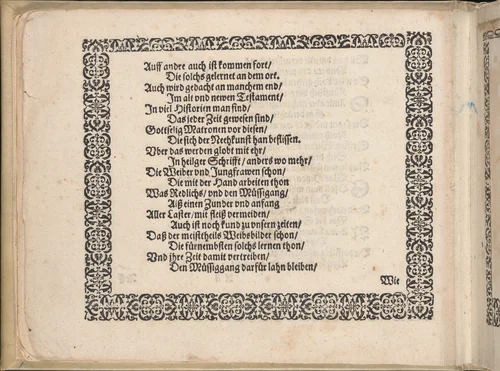 Auff andre auch ist kommen fort/
Die solchs gelernet an dem ort.
Auch wird gedacht an manchem end/
Im alt vnd newen Testament/
In viel Historien man find/
Das jeder Zeit gewesen sind/
Gottselig Matronen vor diesen/
Die sich der Nethkunst han beflissen.
Vber das werden globt mit ehr/
In heilger Schrifft/ anders wo mehr/
Die Weiber vnd Jungfrawen schon/
Die mit der Hand arbeiten thon
Was Redlichs/ vnd den Müssigang/
Alß einen Zunder vnd anfang
Aller Laster/ mit fleiß vermeiden/
Auch ist noch kund zu vnsern zeiten/
Daß der meistetheils Weibsbilder schon/
Die fürnembsten solchs lernen thon/
Vnd jhre Zeit damit vertreiben/
Den Müssiggang darfür lahn bleiben/
Wie